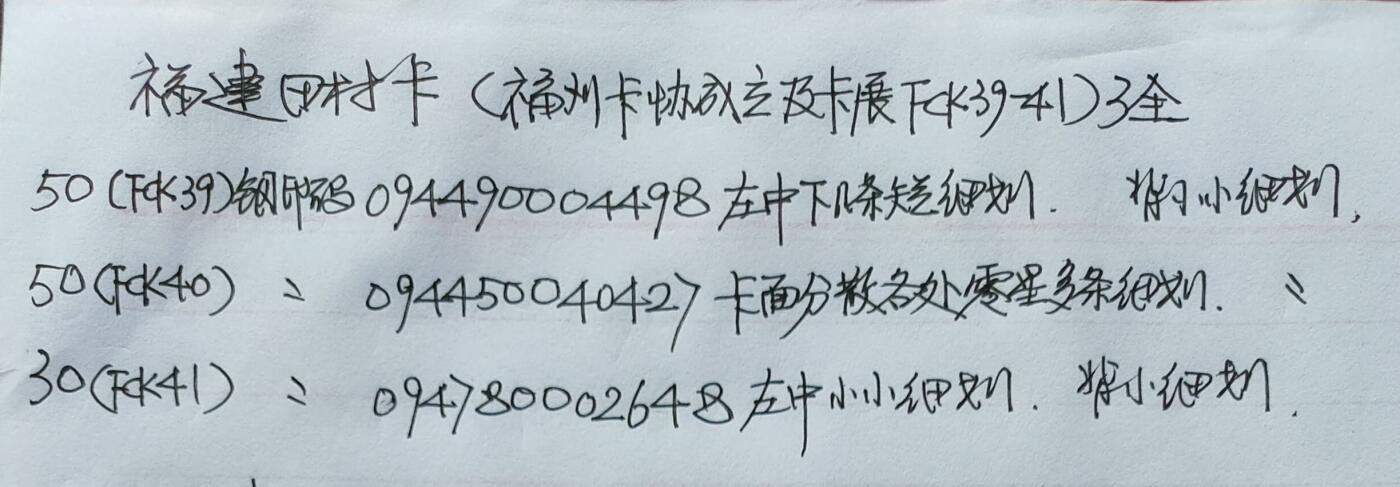 福建田村卡（福州卡协成立及卡展FCK39-41）3全
50（FCK39）钢印码094490004498左中下几条短细划. 背小细划,
50（FCK40） 〃 094450040427卡面分散各处零星多条细划. 〃
30（FCK41） 〃 094780002648左中小小细划. 背小细划.